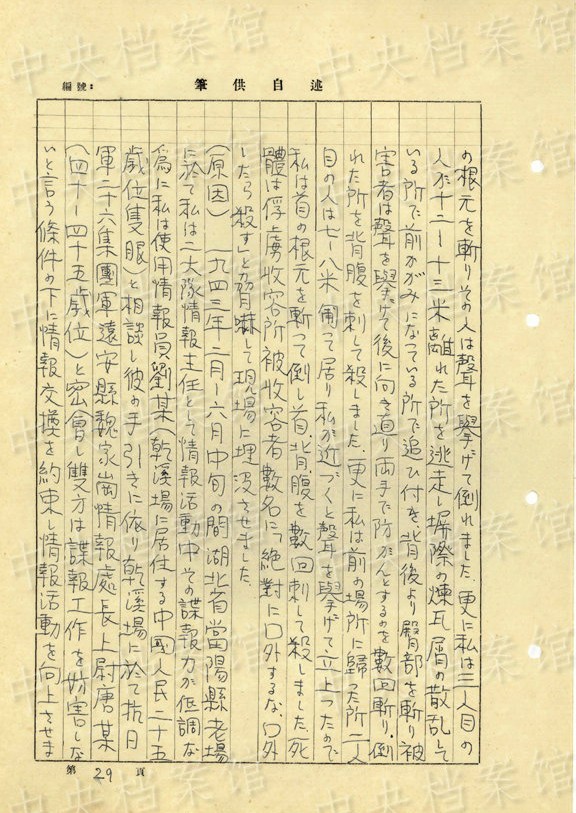 中央档案馆
編號：
筆供自述
の根元を斬りその人は聲を擧げて倒れました。更に私は三人目の
人が十二～十三米離れた所を逃走し塀際の煉瓦屑の散乱して
いる所で前かがみになっている所で追ひ付き、背後より臀部を斬り被
害者は聲を擧げて後に向き直り両手で防がんとするのを數回斬り、倒
れた所を背腹を刺して殺しました。更に私は前の場所に歸った所二人
目の人は七～八米匍って居り私が近づくと聲を擧げて立上ったので
私は首の根元を斬って倒し首、背、腹を數回刺して殺しました。死
體は俘虜收容所被收容者數名に「絶對に口外するな、口外
したら殺す」と脅嚇して現場に埋没させました。
（原因）一九四三年二月～六月中旬の間湖北省當陽縣老場
に於て私は二大隊情報主任として情報活動中その諜報力が低調な
為に私は使用情報員劉某（乾溪場に居住する中国人民二十五
歳位隻眼）と相談し彼の手引きに依り乾溪場に於て抗日
軍二十六集團軍遠安縣魏家崗情報處長上尉唐某
（四十～四十五歳位）と密會し雙方は諜報工作を妨害しな
いと言う條件の下に情報交換を約束し情報活動を向上させま
第 29 頁